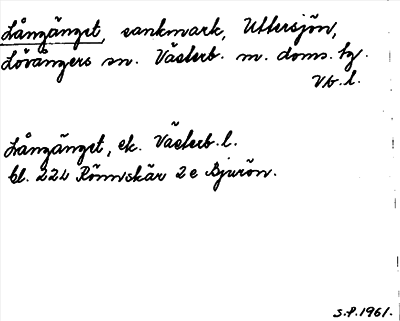 Långänget, sankmark, Uttersjön,
Lövångers sn. Västerb. m. doms. hg.
Vb. l.
Långänget, ek. Västerb. l.
bl. 224 Rönnskär 2 e Bjurön.
S.P. 1961.